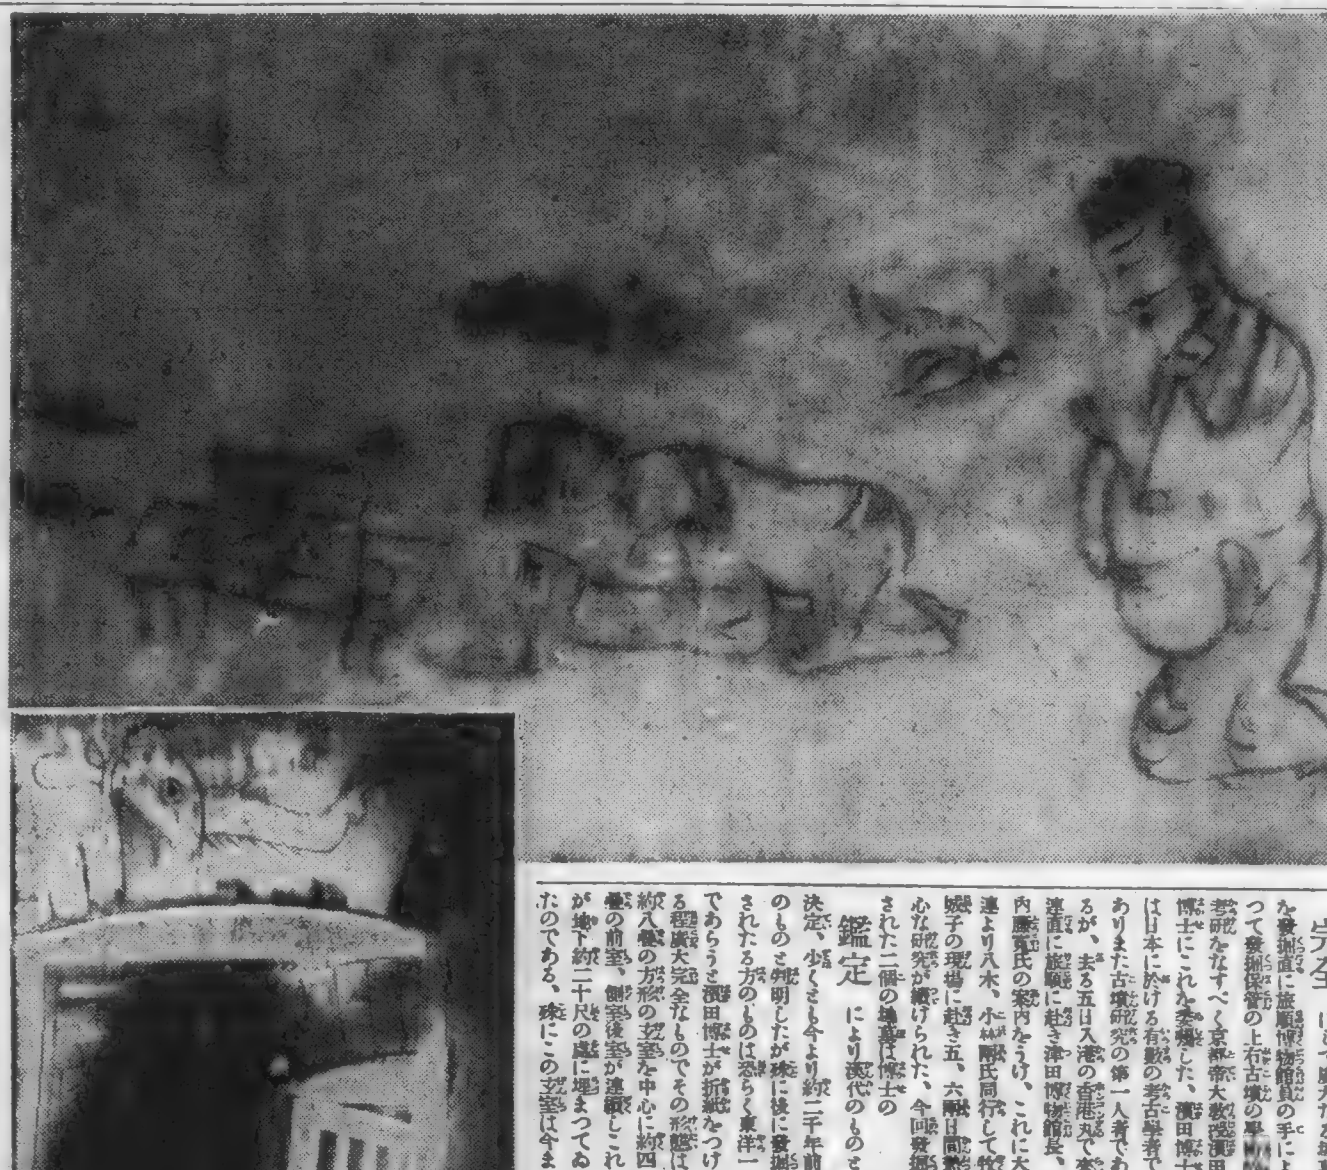 完全 にして廣大なる
を發掘直に旅順博物館員の手に
つて發掘保管の上右古墳の學
考研をなすべく京都帝大教授濱
博士にこれを委囑した、濱田博士
は日本に於ける有數の考古學者で
ありまた古墳研究の第一人者であ
るが、去る五日入港の香港丸で來
連直に旅順に赴き津田博物館長、
内藤寬氏の案内をうけ、これに大
連より八木、小林兩氏同行して牧
城子の現場に赴き五、六兩日間熱
心な研究が續けられた、今回發掘
された二個の墳墓は博士の
鑑定 により漢代のものと
決定、少くとも今より約二千年前
のものと判明したが殊に後に發掘
されたる方のものは恐らく東洋一
であらうと濱田博士が折紙をつけ
る程廣大完全なものでその形態は
約八疊の方形の主室を中心に約四
疊の前室、側室後室が連續しこれ
が地下約二十尺の處に埋まつてゐ
たのである、殊にこの玄室は今ま